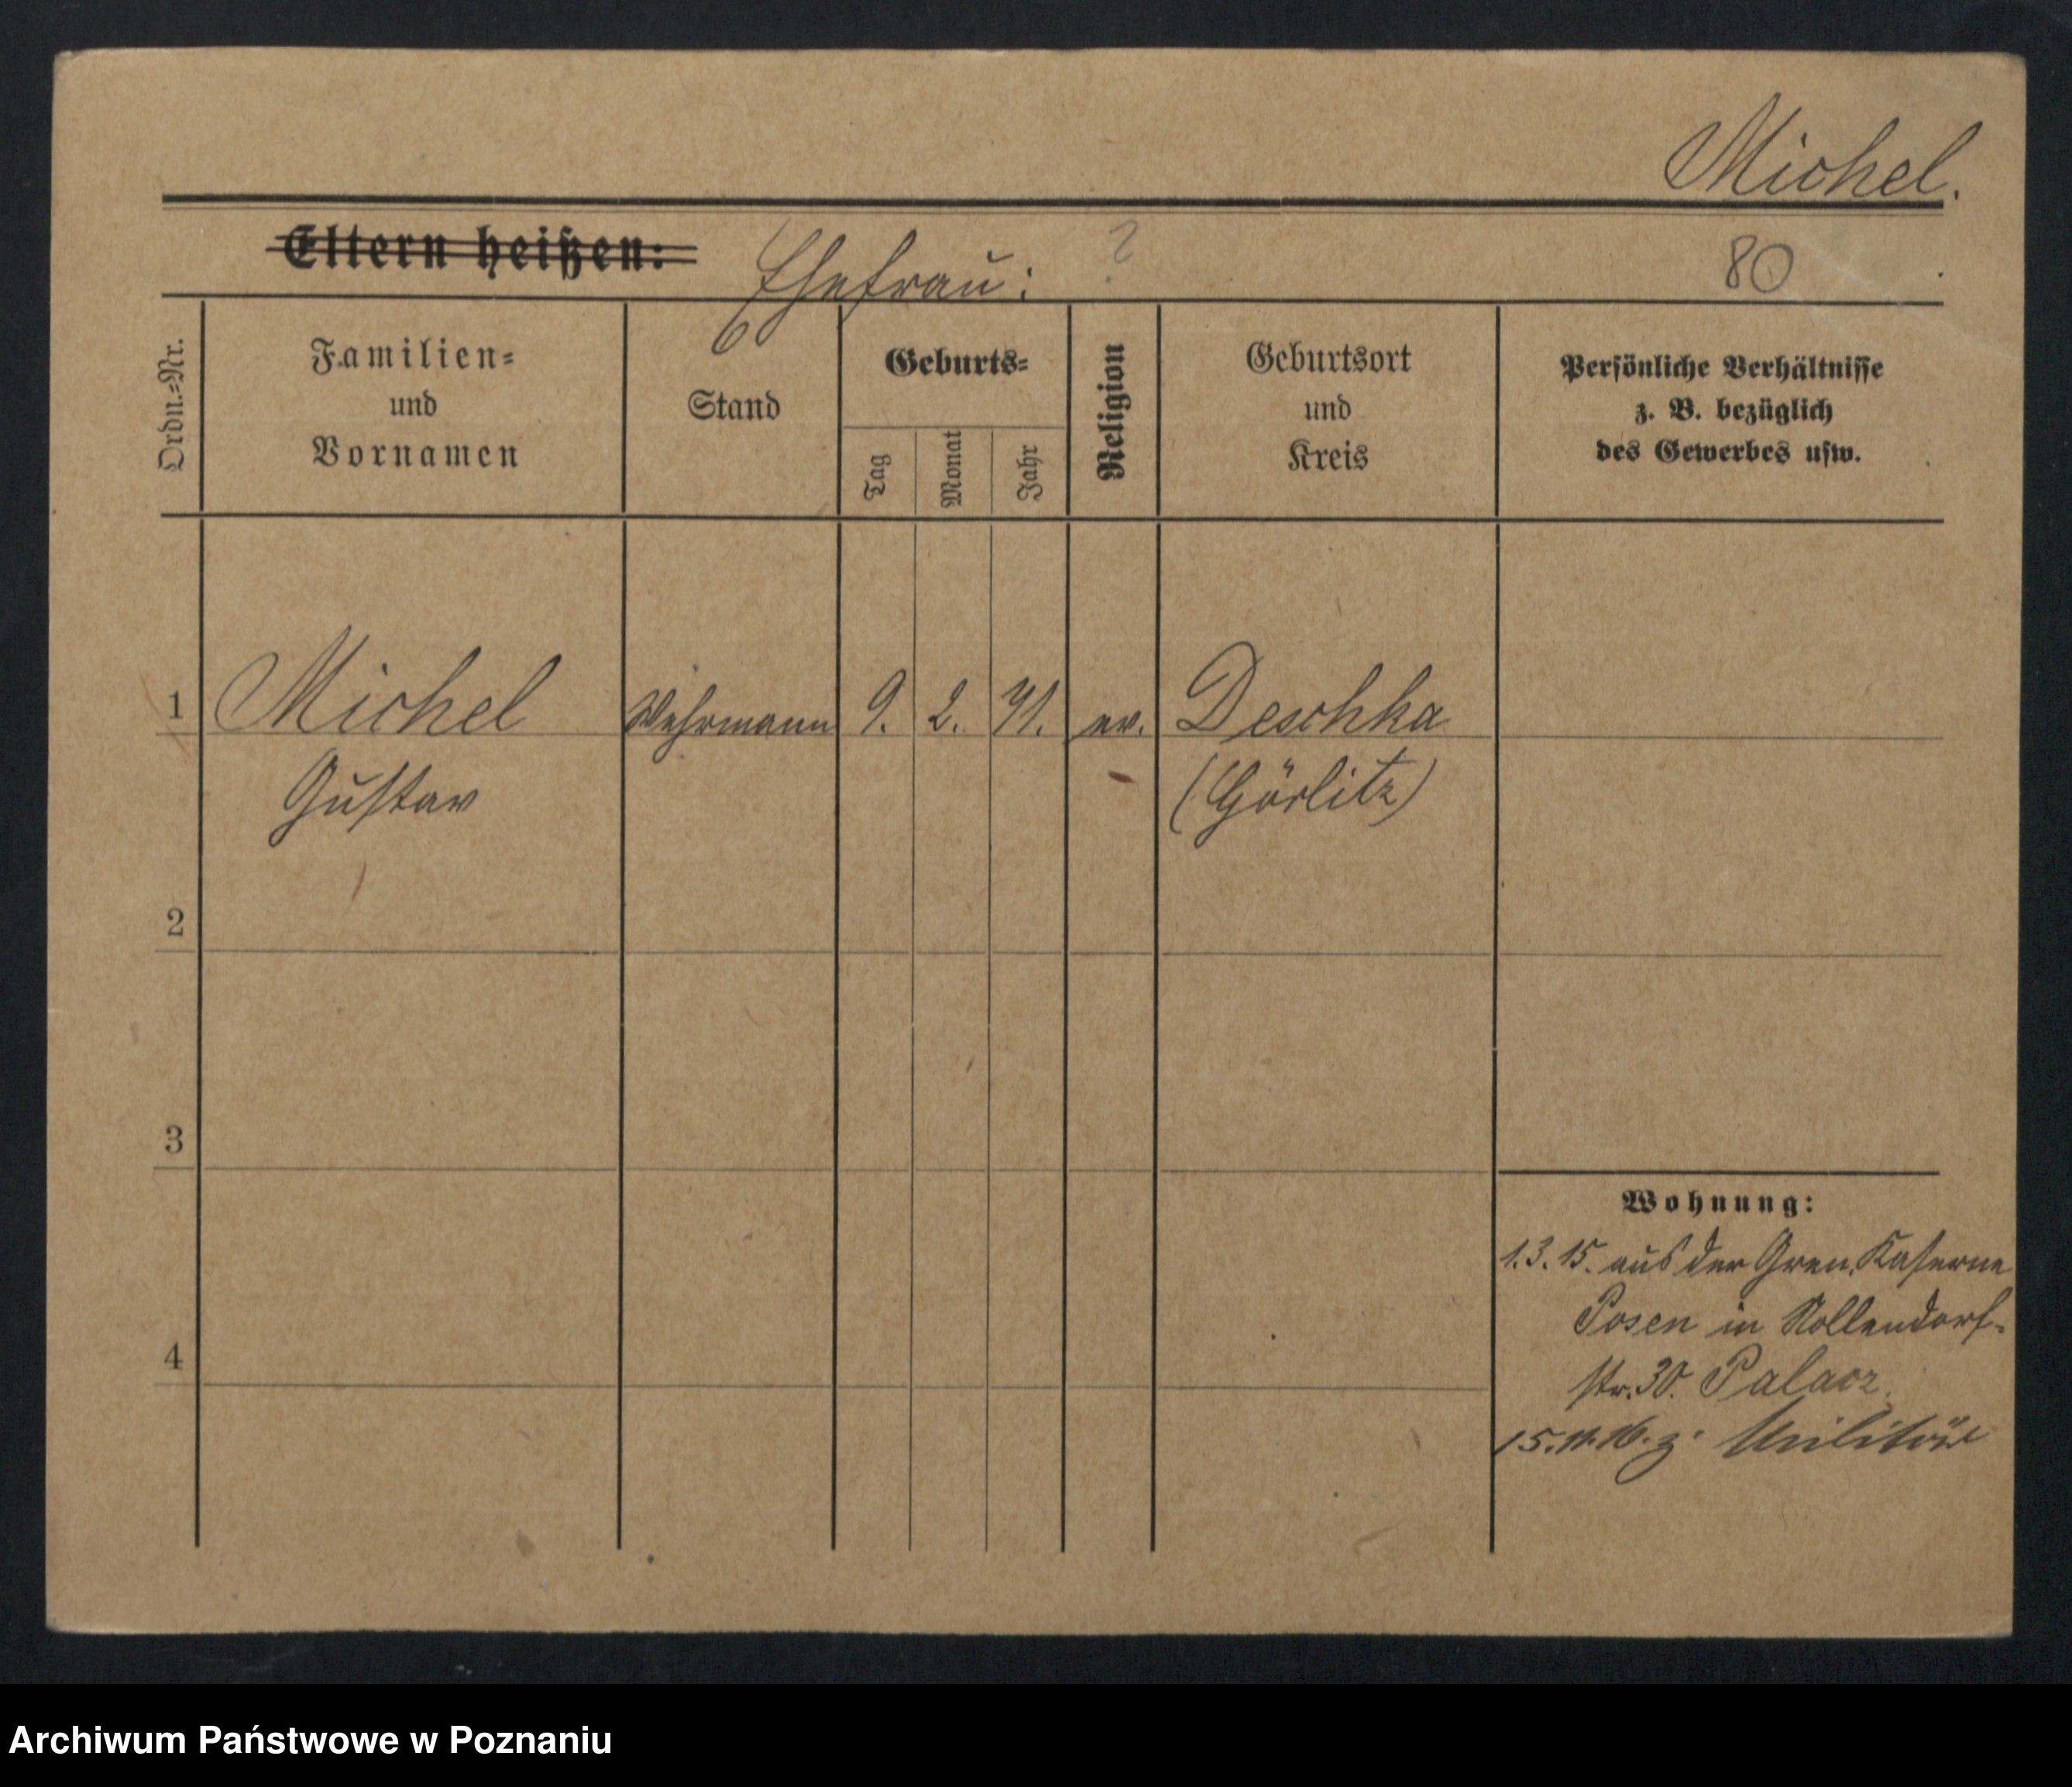 Michel.
Eltern heißen: Ehefrau: ? 80
Ordn.=Nr.
Familien=
und
Vornamen
Stand
Geburts=
Tag
Monat
Jahr
Religion
Geburtsort
und
Kreis
Persönliche Verhältnisse
z. B. bezüglich
des Gewerbes usw.
1 Michel Wehrmann 9. 2. 71. ev. Deschka
Gustav (Görlitz)
2
3
4
Wohnung:
1.3.15. aus der Gren. Kaserne
Posen in Nollendorf-
str. 30. Palacz.
15.11.16. z. Militär
Archiwum Państwowe w Poznaniu